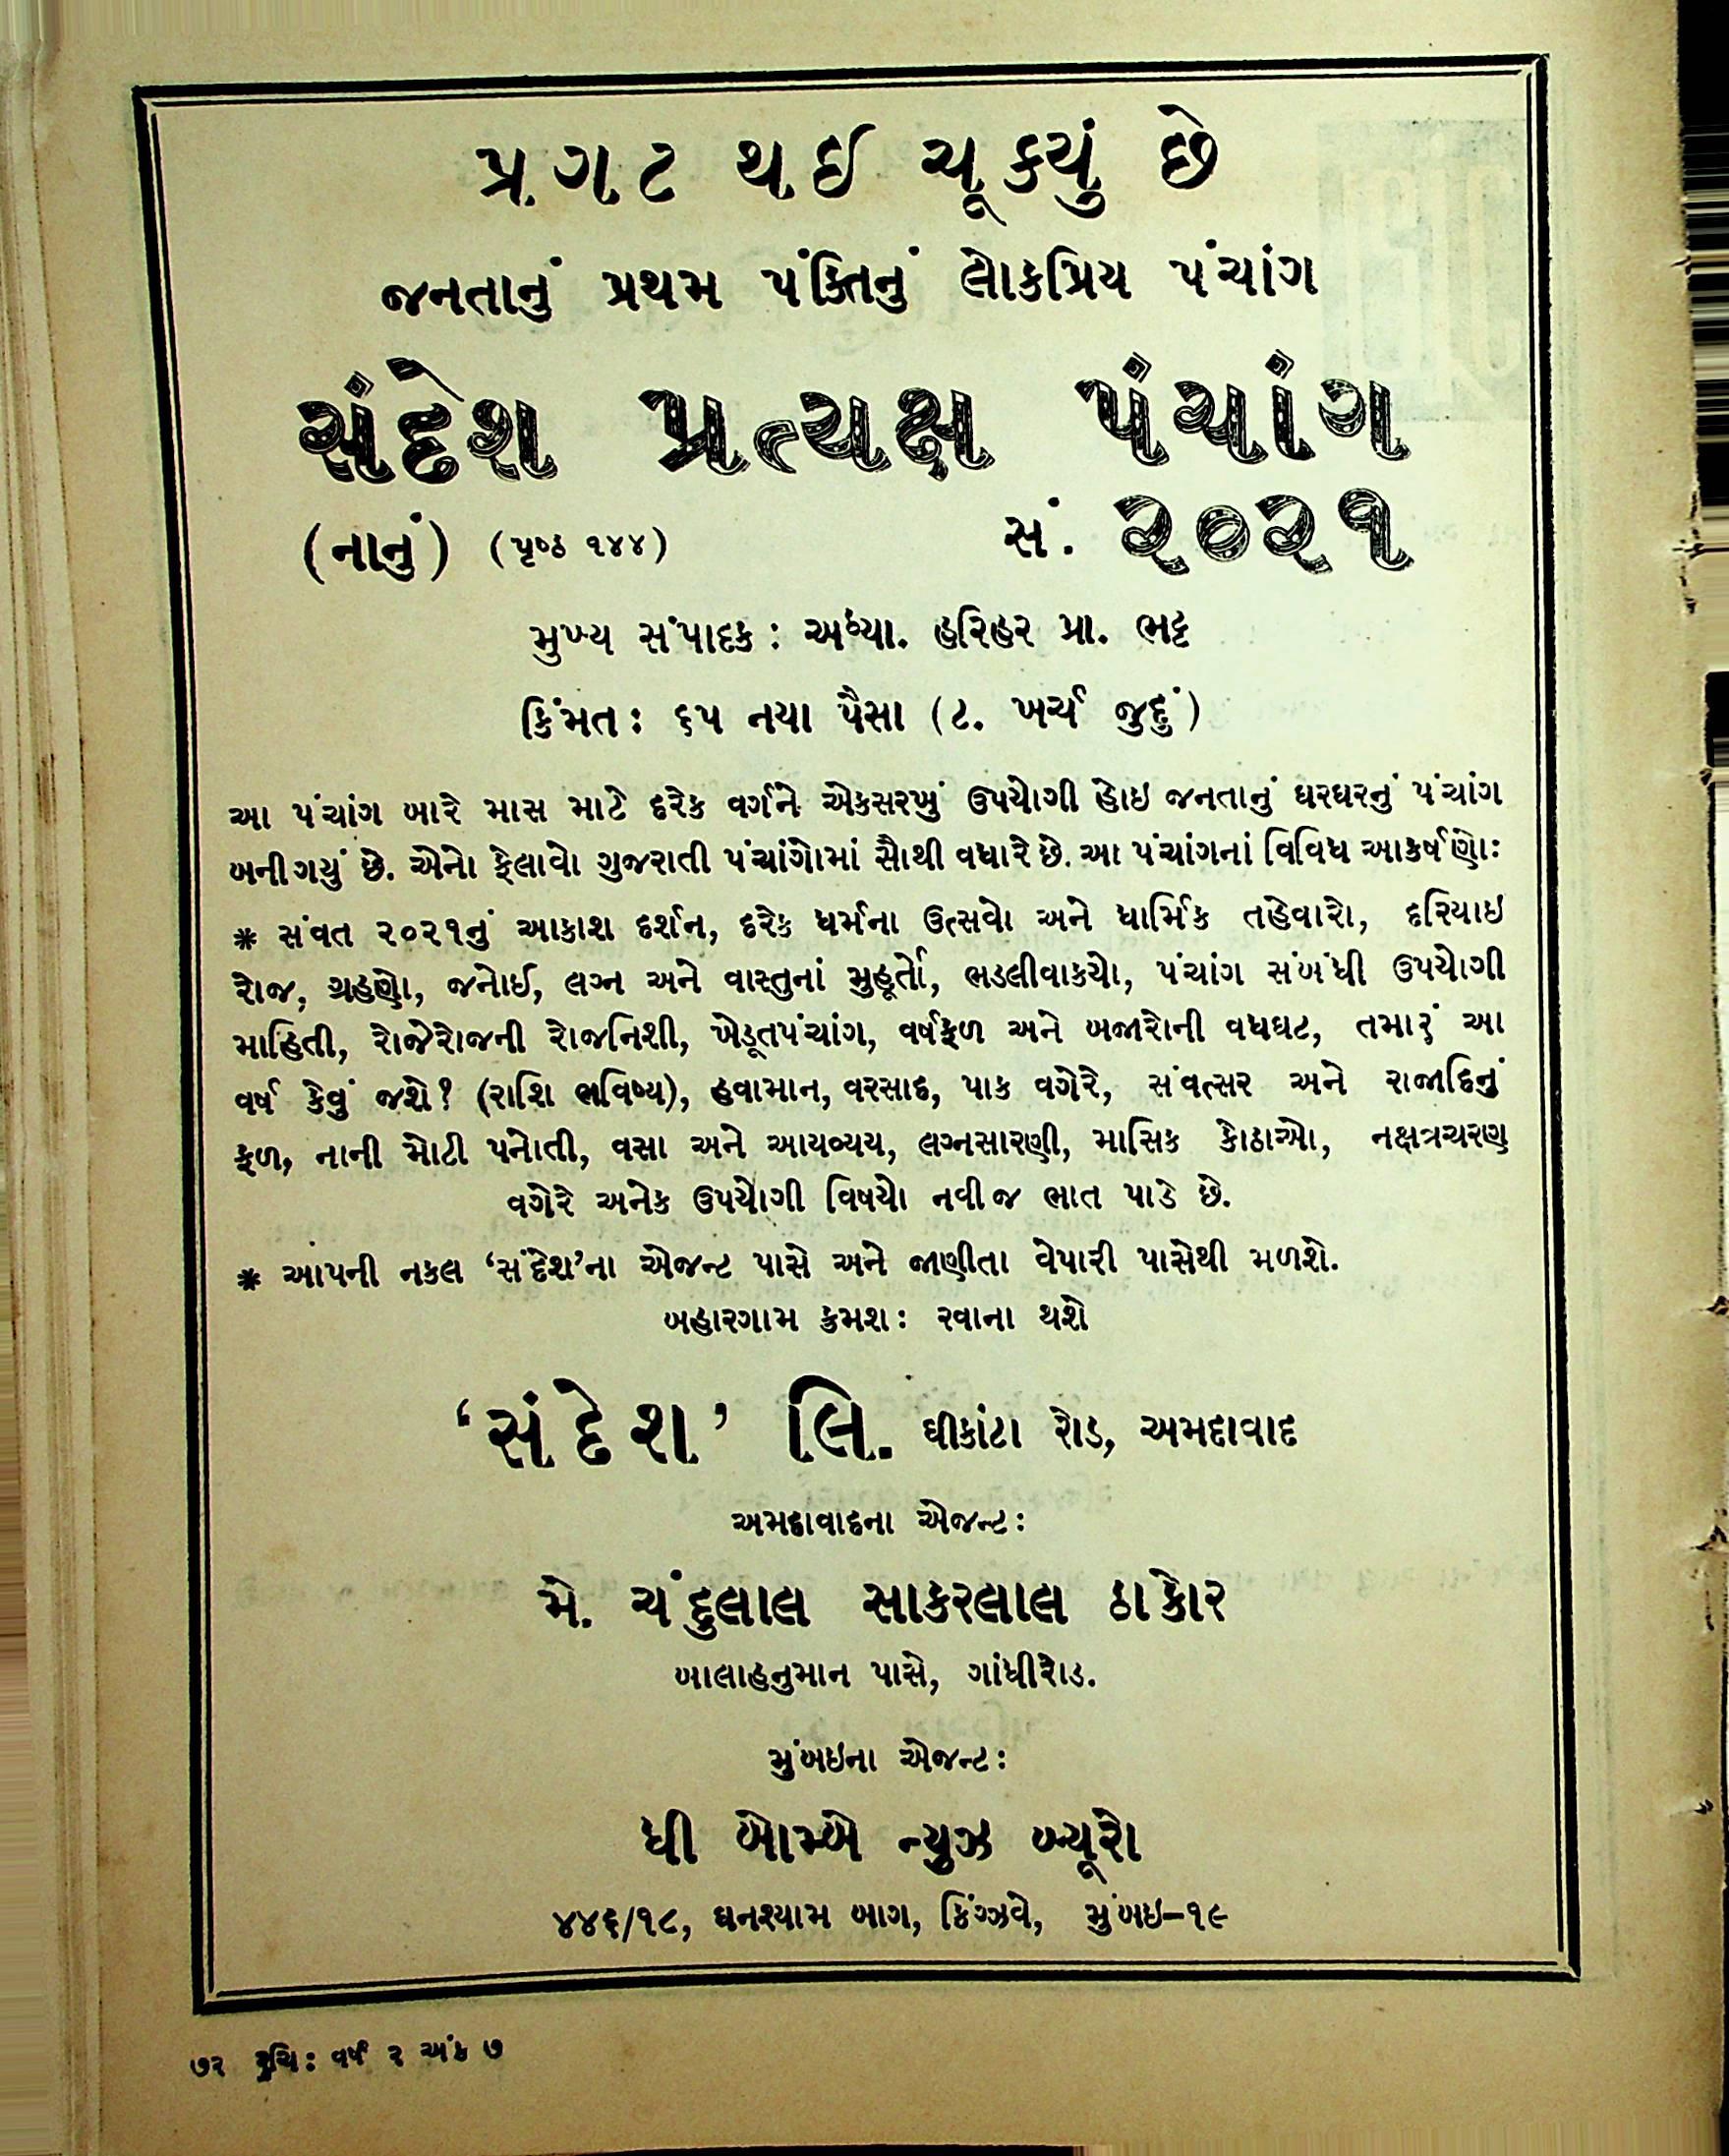 પ્રગટ થઈ ચૂક્યું છે
જનતાનું પ્રથમ પંક્તિનું લોકપ્રિય પંચાંગ
સંદેશ પ્રત્યક્ષ પંચાંગ
(નાનું) (પૃષ્ઠ ૧૪૪) સં. ૨૦૨૧
મુખ્ય સંપાદક : અધ્યા. હરિહર પ્રા. ભટ્ટ
કિંમત : ૬૫ નયા પૈસા (ટ. ખર્ચ જુદું)
આ પંચાંગ બારે માસ માટે દરેક વર્ગને એકસરખું ઉપયોગી હોઇ જનતાનું ઘરઘરનું પંચાંગ
બની ગયું છે. એનો ફેલાવો ગુજરાતી પંચાંગોમાં સૌથી વધારે છે. આ પંચાંગનાં વિવિધ આકર્ષણો :
* સંવત ૨૦૨૧નું આકાશ દર્શન, દરેક ધર્મના ઉત્સવો અને ધાર્મિક તહેવારો, દરિયાઇ
રોજ, ગ્રહણો, જનોઈ, લગ્ન અને વાસ્તુનાં મુહૂર્તો, ભડલીવાકયો, પંચાંગ સંબંધી ઉપયોગી
માહિતી, રોજેરોજની રોજનિશી, ખેડૂતપંચાંગ, વર્ષફળ અને બજારોની વધઘટ, તમારું આ
વર્ષ કેવું જશે? (રાશિ ભવિષ્ય), હવામાન, વરસાદ, પાક વગેરે, સંવત્સર અને રાજાદિનું
ફળ, નાની મોટી પનોતી, વસા અને આયવ્યય, લગ્નસારણી, માસિક કોઠાઓ, નક્ષત્રચરણ
વગેરે અનેક ઉપયોગી વિષયો નવી જ ભાત પાડે છે.
* આપની નકલ ‘સંદેશ’ના એજન્ટ પાસે અને જાણીતા વેપારી પાસેથી મળશે.
બહારગામ ક્રમશઃ રવાના થશે
‘સંદેશ’ લિ. ઘીકાંટા રોડ, અમદાવાદ
અમદાવાદના એજન્ટ :
મે. ચંદુલાલ સાકરલાલ ઠાકોર
બાલાહનુમાન પાસે, ગાંધીરોડ.
મુંબઇના એજન્ટ :
ધી બોમ્બે ન્યુઝ બ્યૂરો
૪૪૬/૧૮, ઘનશ્યામ બાગ, કિંગ્ઝવે, મુંબઇ–૧૯
૭૨ રુચિ : વર્ષ ૨ અંક ૭